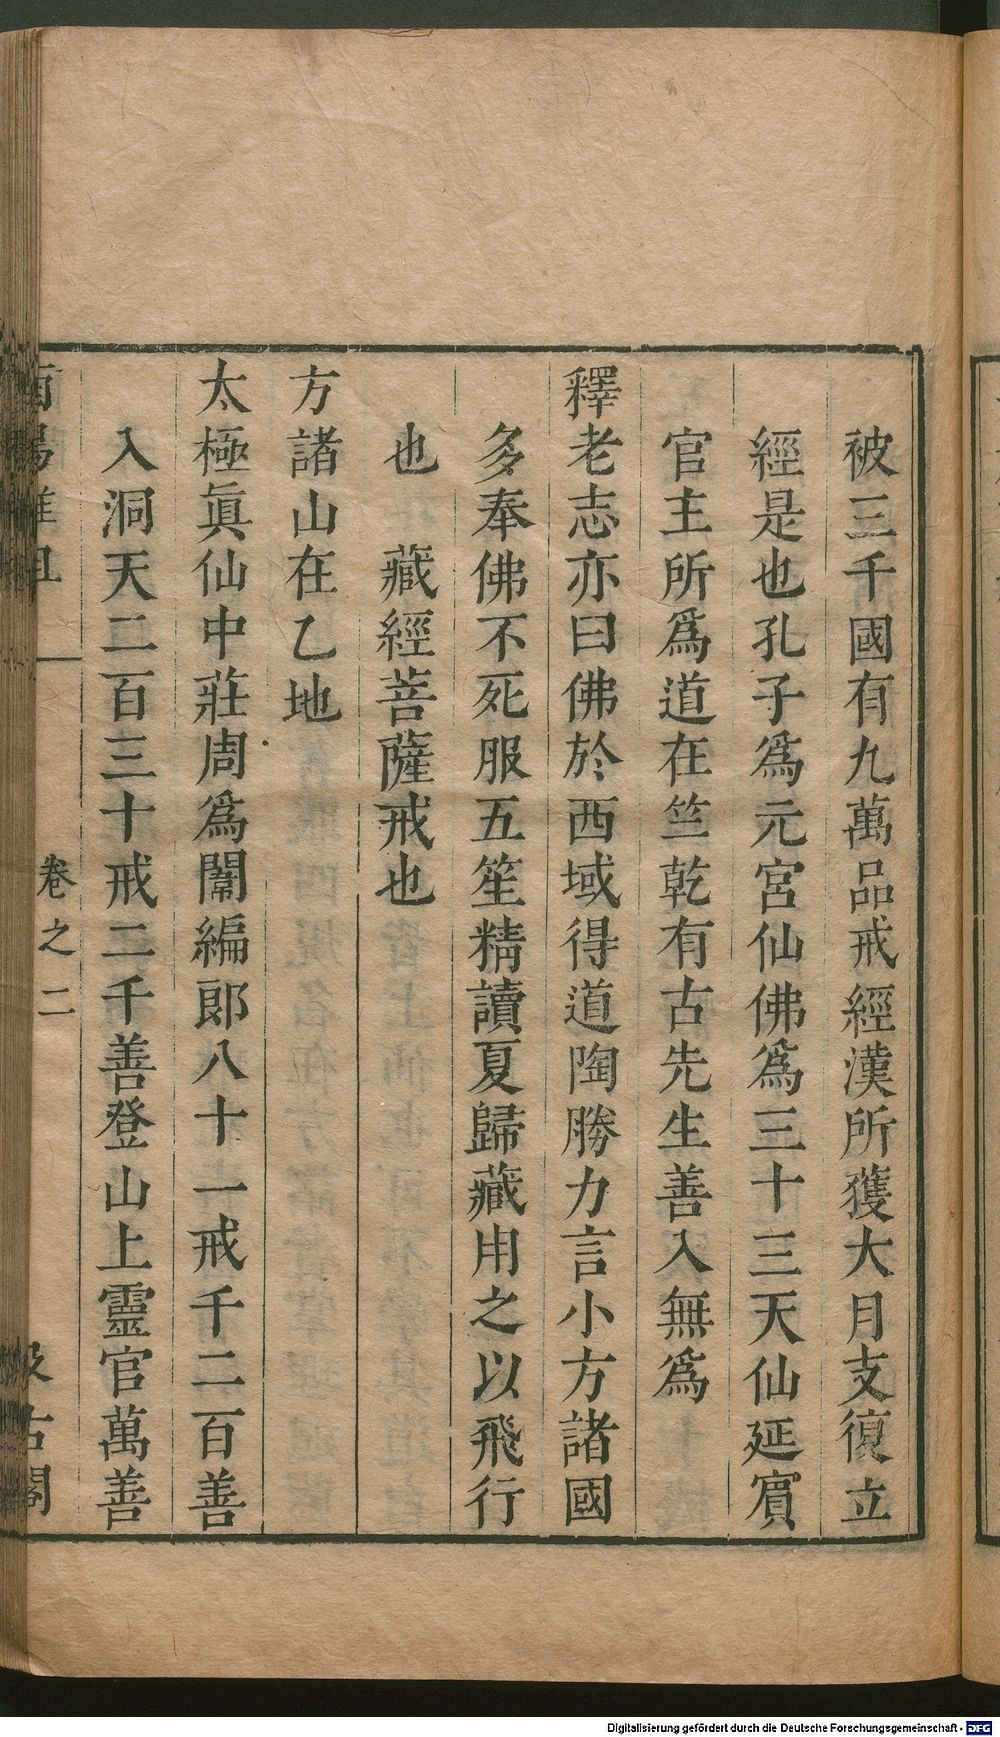 被三千國有九萬品戒經漢所獲大月支復立
經是也孔子爲元宮仙佛爲三十三天仙延賔
官主所爲道在竺乾有古先生善入無爲
釋老志亦曰佛於西域得道陶勝力言小方諸國
多奉佛不死服五笙精讀夏歸藏用之以飛行
也　藏經菩薩戒也
方諸山在乙地
太極眞仙中莊周爲闈編郞八十一戒千二百善
入洞天二百三十戒二千善登山上靈官萬善
卷之二
古閣
Digitalisierung gefördert durch die Deutsche Forschungsgemeinschaft - DFG